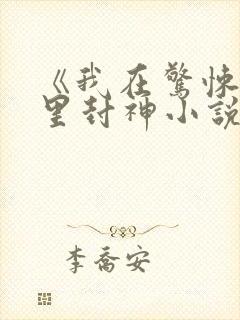 《我在驚悚
里封神小說
李喬安